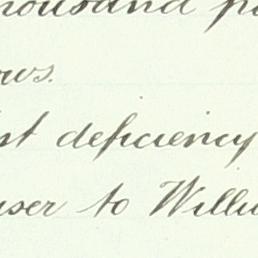 thousand
ws.
st deficiency
user to Willi